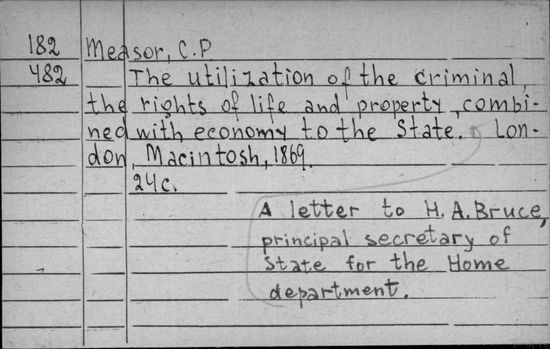 182 Measor, C.P.
482 The utilization of the criminal,
the rights of life and property, combi-
ned with economy to the State. Lon-
don, Macintosh, 1869.
24c.
A letter to H. A. Bruce,
principal secretary of
State for the Home
department.